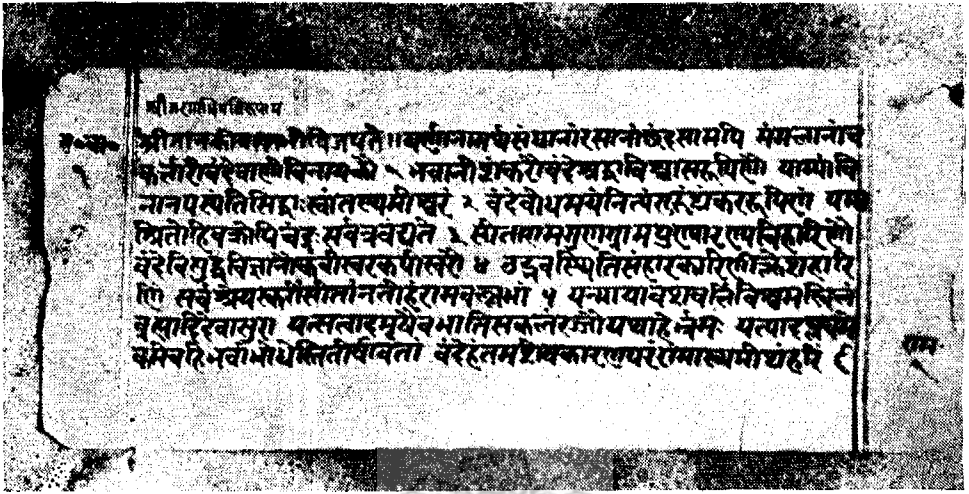 श्रीगणेशायनमः
श्रीजानकीवल्लभोविजयते ॥ वर्णानामर्थसंघानांरसानांछंदसामपि मंगलानांच
कर्त्तारौवंदेवाणीविनायकौ १ भवानीशंकरौवंदेश्रद्धाविश्वासरूपिणौ याभ्यांवि
नानपस्यंतिसिद्धाःस्वांतस्थमीश्वरं २ वंदेवोधमयंनित्यंगुरुंशंकररूपिणं यमा
श्रितोहिवक्रोपिचंद्रःसर्वत्रवंद्यते ३ सीतारामगुणग्रामपुण्यारण्यविहारिणौ
वंदेविशुद्धविज्ञानौकवीस्वरकपीस्वरौ ४ उद्भवस्थितिसंहारकारिणींक्लेशहारि
णीं सर्वश्रेयस्करींसीतांनतोहंरामवल्लभां ५ यन्मायावंशवर्त्तिविश्वमखिलं
व्रह्मादिदेवासुरा यत्सत्वादमृषैवभातिसकलंरज्जौयथाहेर्भ्रमः यत्पादप्लवमे
कमेवहिभवांभोधेस्तितीर्षावतां वंदेहंतमशेषकारणपरंरामाख्यमीशंहरिं ६
राम